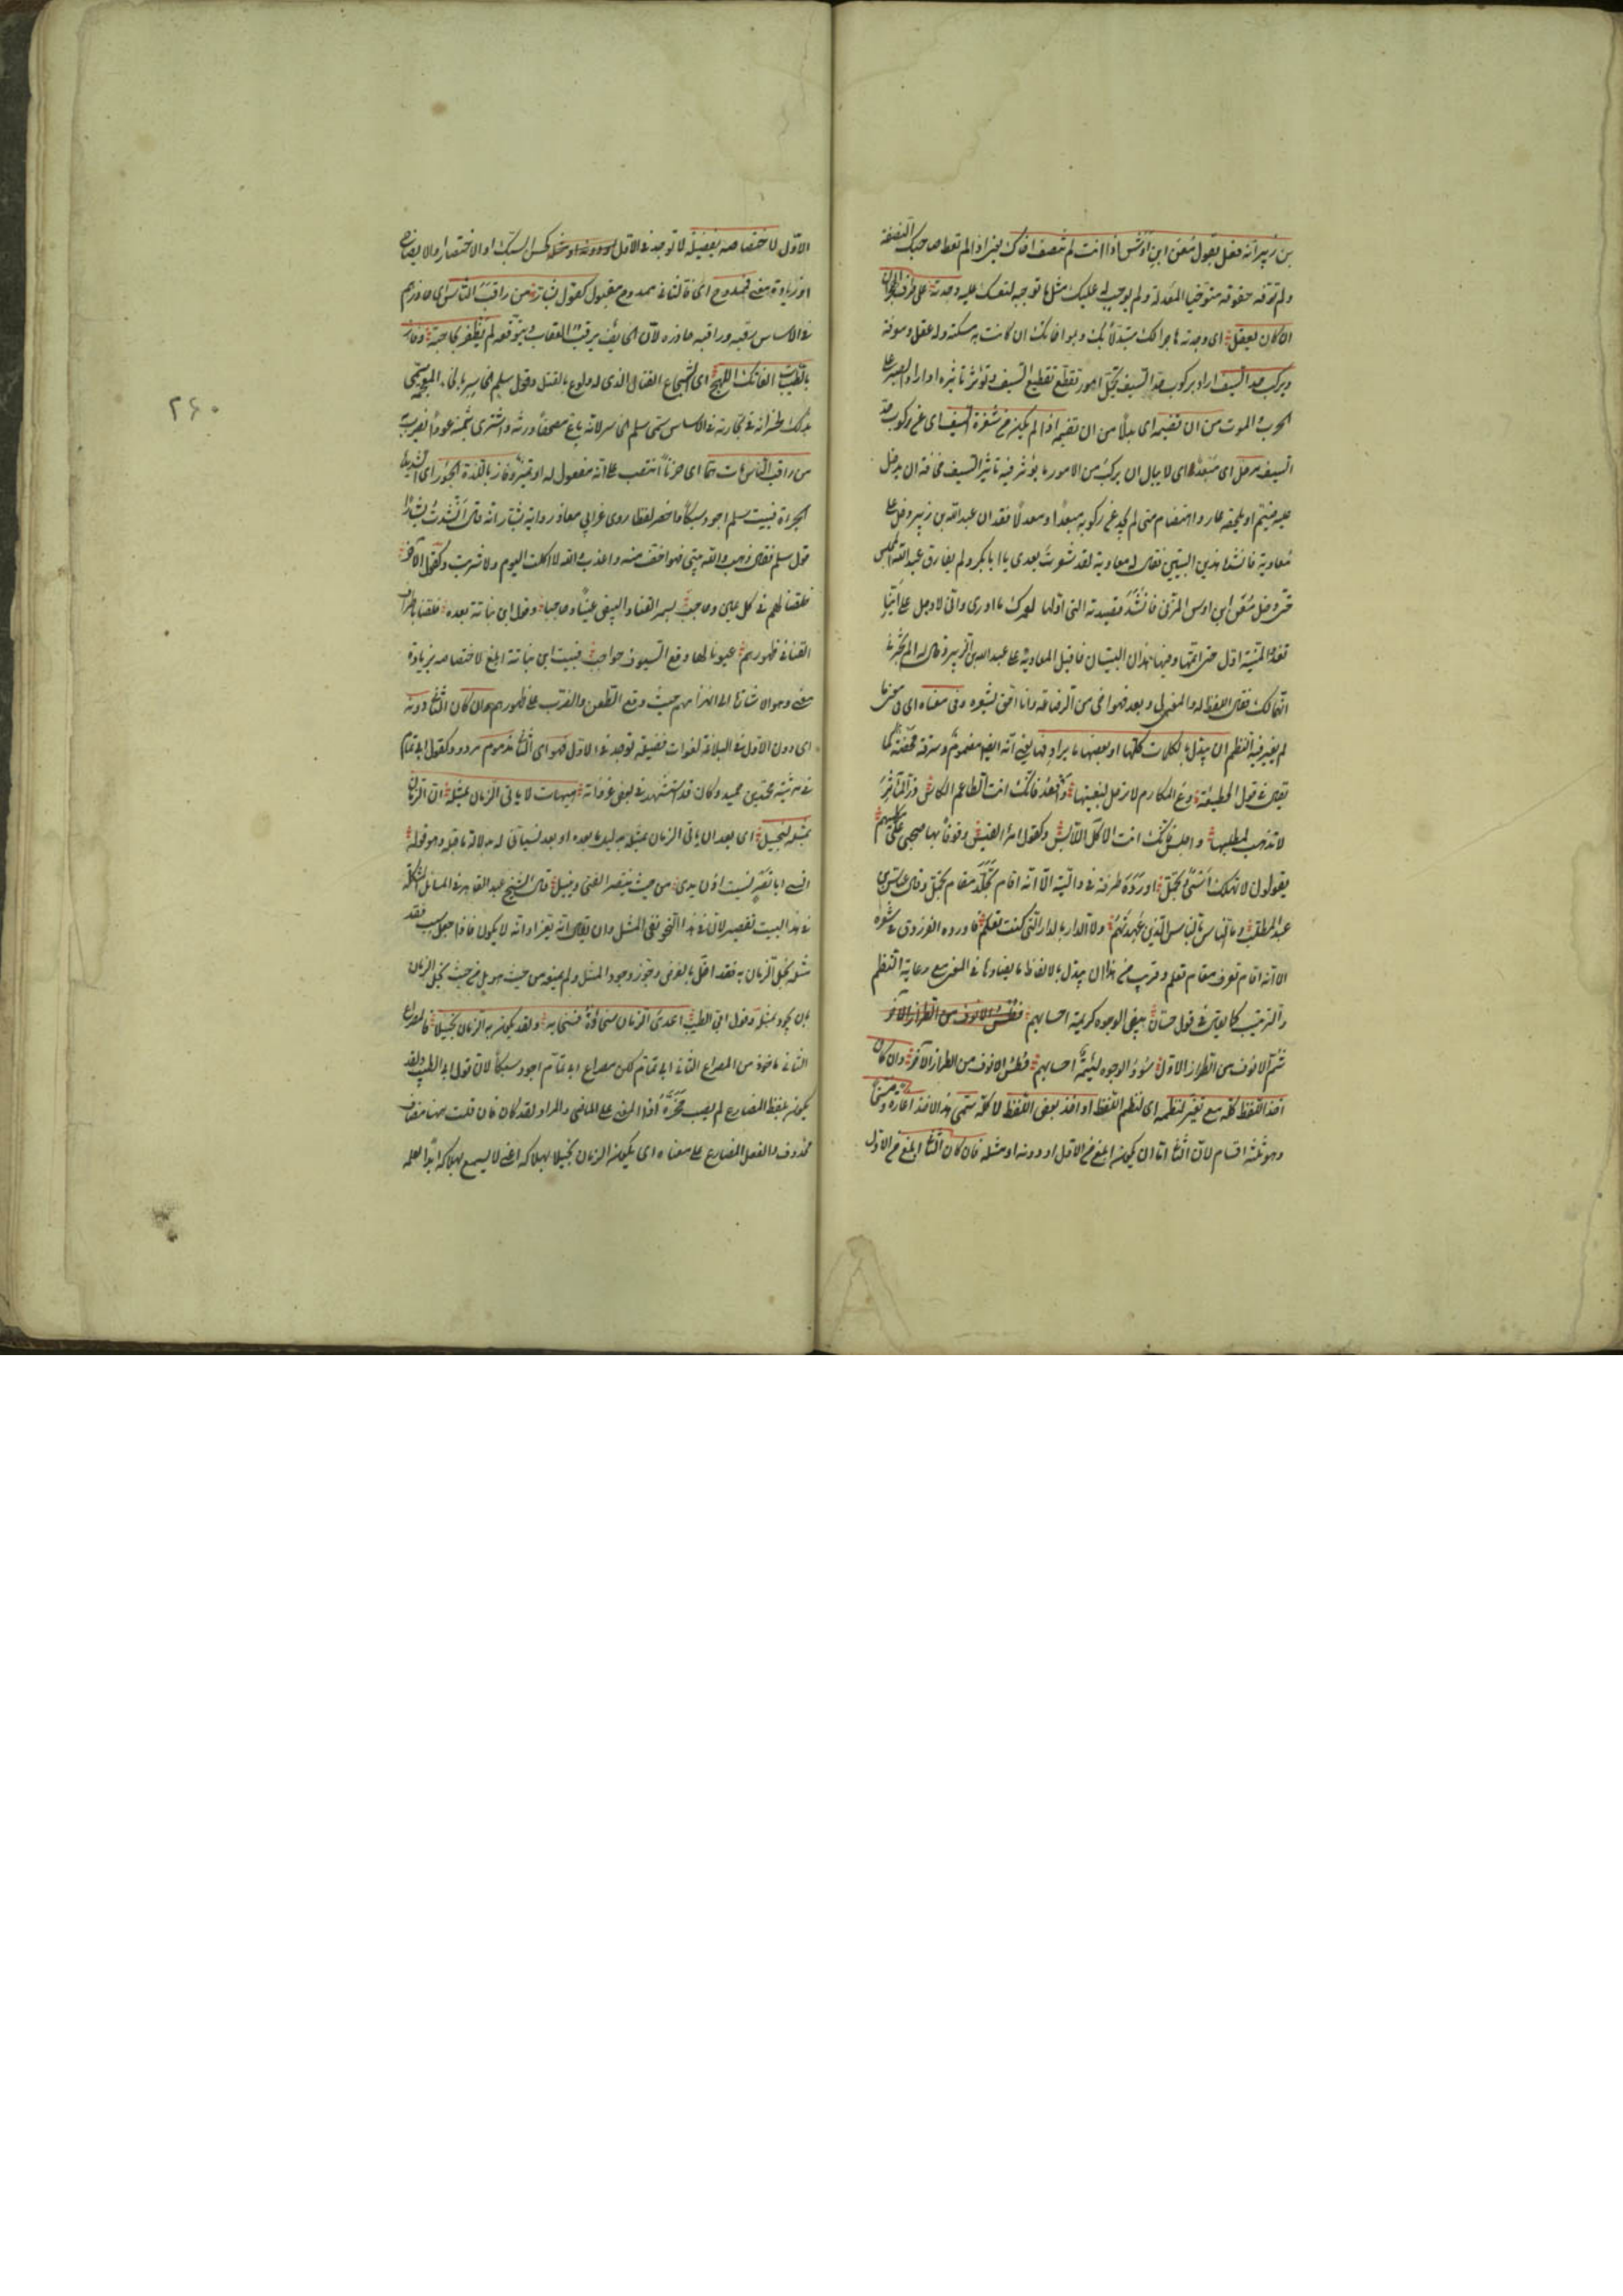 بن زبير انه فعل بقول معن ابن اوس اذا انت لم تنصف اخاك يعنى اذا لم تعط صاحبك النصفة
ولم توفه حقوقه متوخيا المعدلة ولم توجب له عليك مثل ما توجبه لنفسك عليه وجدته على طرف الهجران
ان كان يعقل اى وجدته هاجرا لك متبدلا بك وبمواخاتك ان كانت به مسكة وله عقل ومعرفة
ويركب حد السيف اراد بركوب حد السيف تحمل امور تقطع تقطيع السيف وتؤثر تأثيره او اراد الصبر على
الحرب والموت من ان تضيمه اى بدلا من ان تضيمه اذا لم يكن عن شفرة السيف اى عن ركوب حد
السيف مزحل اى مبعد اى لا يبالى ان يركب من الامور ما يؤثر فيه تأثير السيف مخافة ان يدخل
عليه ضيم او يلحقه عار واهتضام متى لم يجد عن ركوبه مبعدا او معدلا فقد ان عبد الله بن زبير دخل على
معاوية فانشده هذين البيتين فقال له معاوية لقد شعرت بعدى يا ابا بكر ولم يفارق عبد الله المجلس
حتى دخل معن ابن اوس المزنى فانشد قصيدته التى اولها لعمرك ما ادرى وانى لاوجل على اينا
تغدو المنية اول حتى اتمها وفيها هذان البيتان فاقبل المعاوية على عبد الله بن الزبير وقال له الم تخبرنى
انهما لك فقال اللفظ له والمعنى لى وبعد فهو اخى من الرضاعة وانا احق بشعره وفى معناه اى فى معنى ما
لم يغير فيه النظم ان يبدل بالكلمات كلها او بعضها ما يرادفها يعنى انه ايضا مذموم وسرقة محضة كما
يقال فى قول الحطيئة دع المكارم لا ترحل لبغيتها واقعد فانك انت الطاعم الكاسى ذر المآثر
لا تذهب لمطلبها واجلس فانك انت الآكل اللابس وكقول امرء القيس وقوفا بها صحبى على مطيهم
يقولون لا تهلك اسى وتجمل اورده طرفة فى داليته الا انه اقام تجلد مقام تجمل وقال عباس بن
عبد المطلب وما الناس بالناس الذين عهدتهم ولا الدار بالدار التى كنت تعلم فاورده الفرزدق فى شعره
الا انه اقام تعرف مقام تعلم وقريب من هذا ان يبدل بالالفاظ ما يضادها فى المعنى مع رعاية النظم
والترتيب كما يقال فى قول حسان بيض الوجوه كريمة احسابهم فطس الانوف من الطراز الآخر
شم الانوف من الطراز الاول سود الوجوه لئيمة احسابهم فطس الانوف من الطراز الآخر وان كان
اخذ اللفظ كله مع تغيير لنظمه اى لنظم اللفظ او اخذ بعض اللفظ لا كله سمى هذا الاخذ اغارة ومسخا
وهو ثلثة اقسام لان الثانى اما ان يكون ابلغ من الاول او دونه او مثله فان كان الثانى ابلغ من الاول
الاول لاختصاصه بفضيلة لا توجد فى الاول كحسن السبك او الاختصار او الايضاح
او زيادة معنى فممدوح اى فالثانى ممدوح مقبول كقول بشار من راقب الناس اى حاذرهم
فى الاساس رقبه وراقبه حاذره لان الخائف يرقب العقاب ويتوقعه لم يظفر بحاجته وفاز
بالطيبات الفاتك اللهج اى الشجاع القتال الذى له ولوع بالقتل وقول سلم الخاسر
بذلك لخسرانه فى تجارته فى الاساس سمى سلم الخاسر لانه باع مصحفا ورثه واشترى بثمنه عودا يضرب به
من راقب الناس مات غما اى حزنا انتصب على انه مفعول له او تمييز وفاز باللذة الجسور اى الشديد
الجرأة فبيت سلم اجود سبكا واخصر لفظا روى عن ابى معاذ رواية بشار انه قال انشدت بشارا
قول سلم فقال ذهب والله بيتى فهو اخف منه واعذب والله لا اكلت اليوم ولا شربت وكقول الآخر
خلقنا لهم فى كل عين وحاجب بسمر القنا والبيض عينا وحاجبا وقول ابن نباتة بعده خلقنا باطراف
القنا فى ظهورهم عيونا لها وقع السيوف حواجب فبيت ابن نباتة ابلغ لاختصاصه بزيادة
معنى وهو الاشارة الى انهزامهم حيث وقع الطعن والضرب على ظهورهم وان كان الثانى دونه
اى دون الاول فى البلاغة لفوات فضيلة توجد فى الاول فهو اى الثانى مذموم مردود كقول ابى تمام
فى مرثية محمد بن حميد وكان قد استشهد فى بعض غزواته هيهات لا يأتى الزمان بمثله ان الزمان
بمثله لبخيل اى بعد ان ياتى الزمان بمثله بدليل ما بعده او بعد نسيانى له بدلالة ما قبله وهو قوله
انسى ابا نصر نسيت اذن يدى من حيث ينتصر الفتى وينيل قال الشيخ عبد القاهر فى المسائل المشكلة
فى هذا البيت تقصير لان فى هذا النحو نفى المثل وان يقال انه يعز او انه لا يكون فاذا جعل سبب فقد
مثله بخل الزمان به فقد اخل بالغرض وجوز وجود المثل ولم يمنعه من حيث هو بل من حيث بخل الزمان
بان يجود بمثله وقول ابى الطيب اعدى الزمان سخاؤه فسخى به ولقد يكون به الزمان بخيلا فالمصراع
الثانى ماخوذ من المصراع الثانى لابى تمام لكن مصراع ابى تمام اجود سبكا لان قول ابى الطيب ولقد
يكون بلفظ المضارع لم يصب محزه اذا المعنى على الماضى والمراد لقد كان فان قلت ههنا مضاف
محذوف والفعل المضارع على معناه اى يكون الزمان بخيلا بهلاكه اعنى لا يسمح بهلاكه ابدا لعلمه
۲۶۰